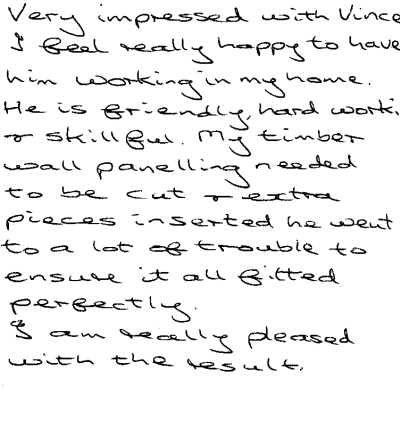 Very impressed with Vince
I feel really happy to have
him working in my home.
He is friendly, hard worki
& skillful. My timber
wall panelling needed
to be cut & extra
pieces inserted he went
to a lot of trouble to
ensure it all fitted
perfectly.
I am really pleased
with the result.